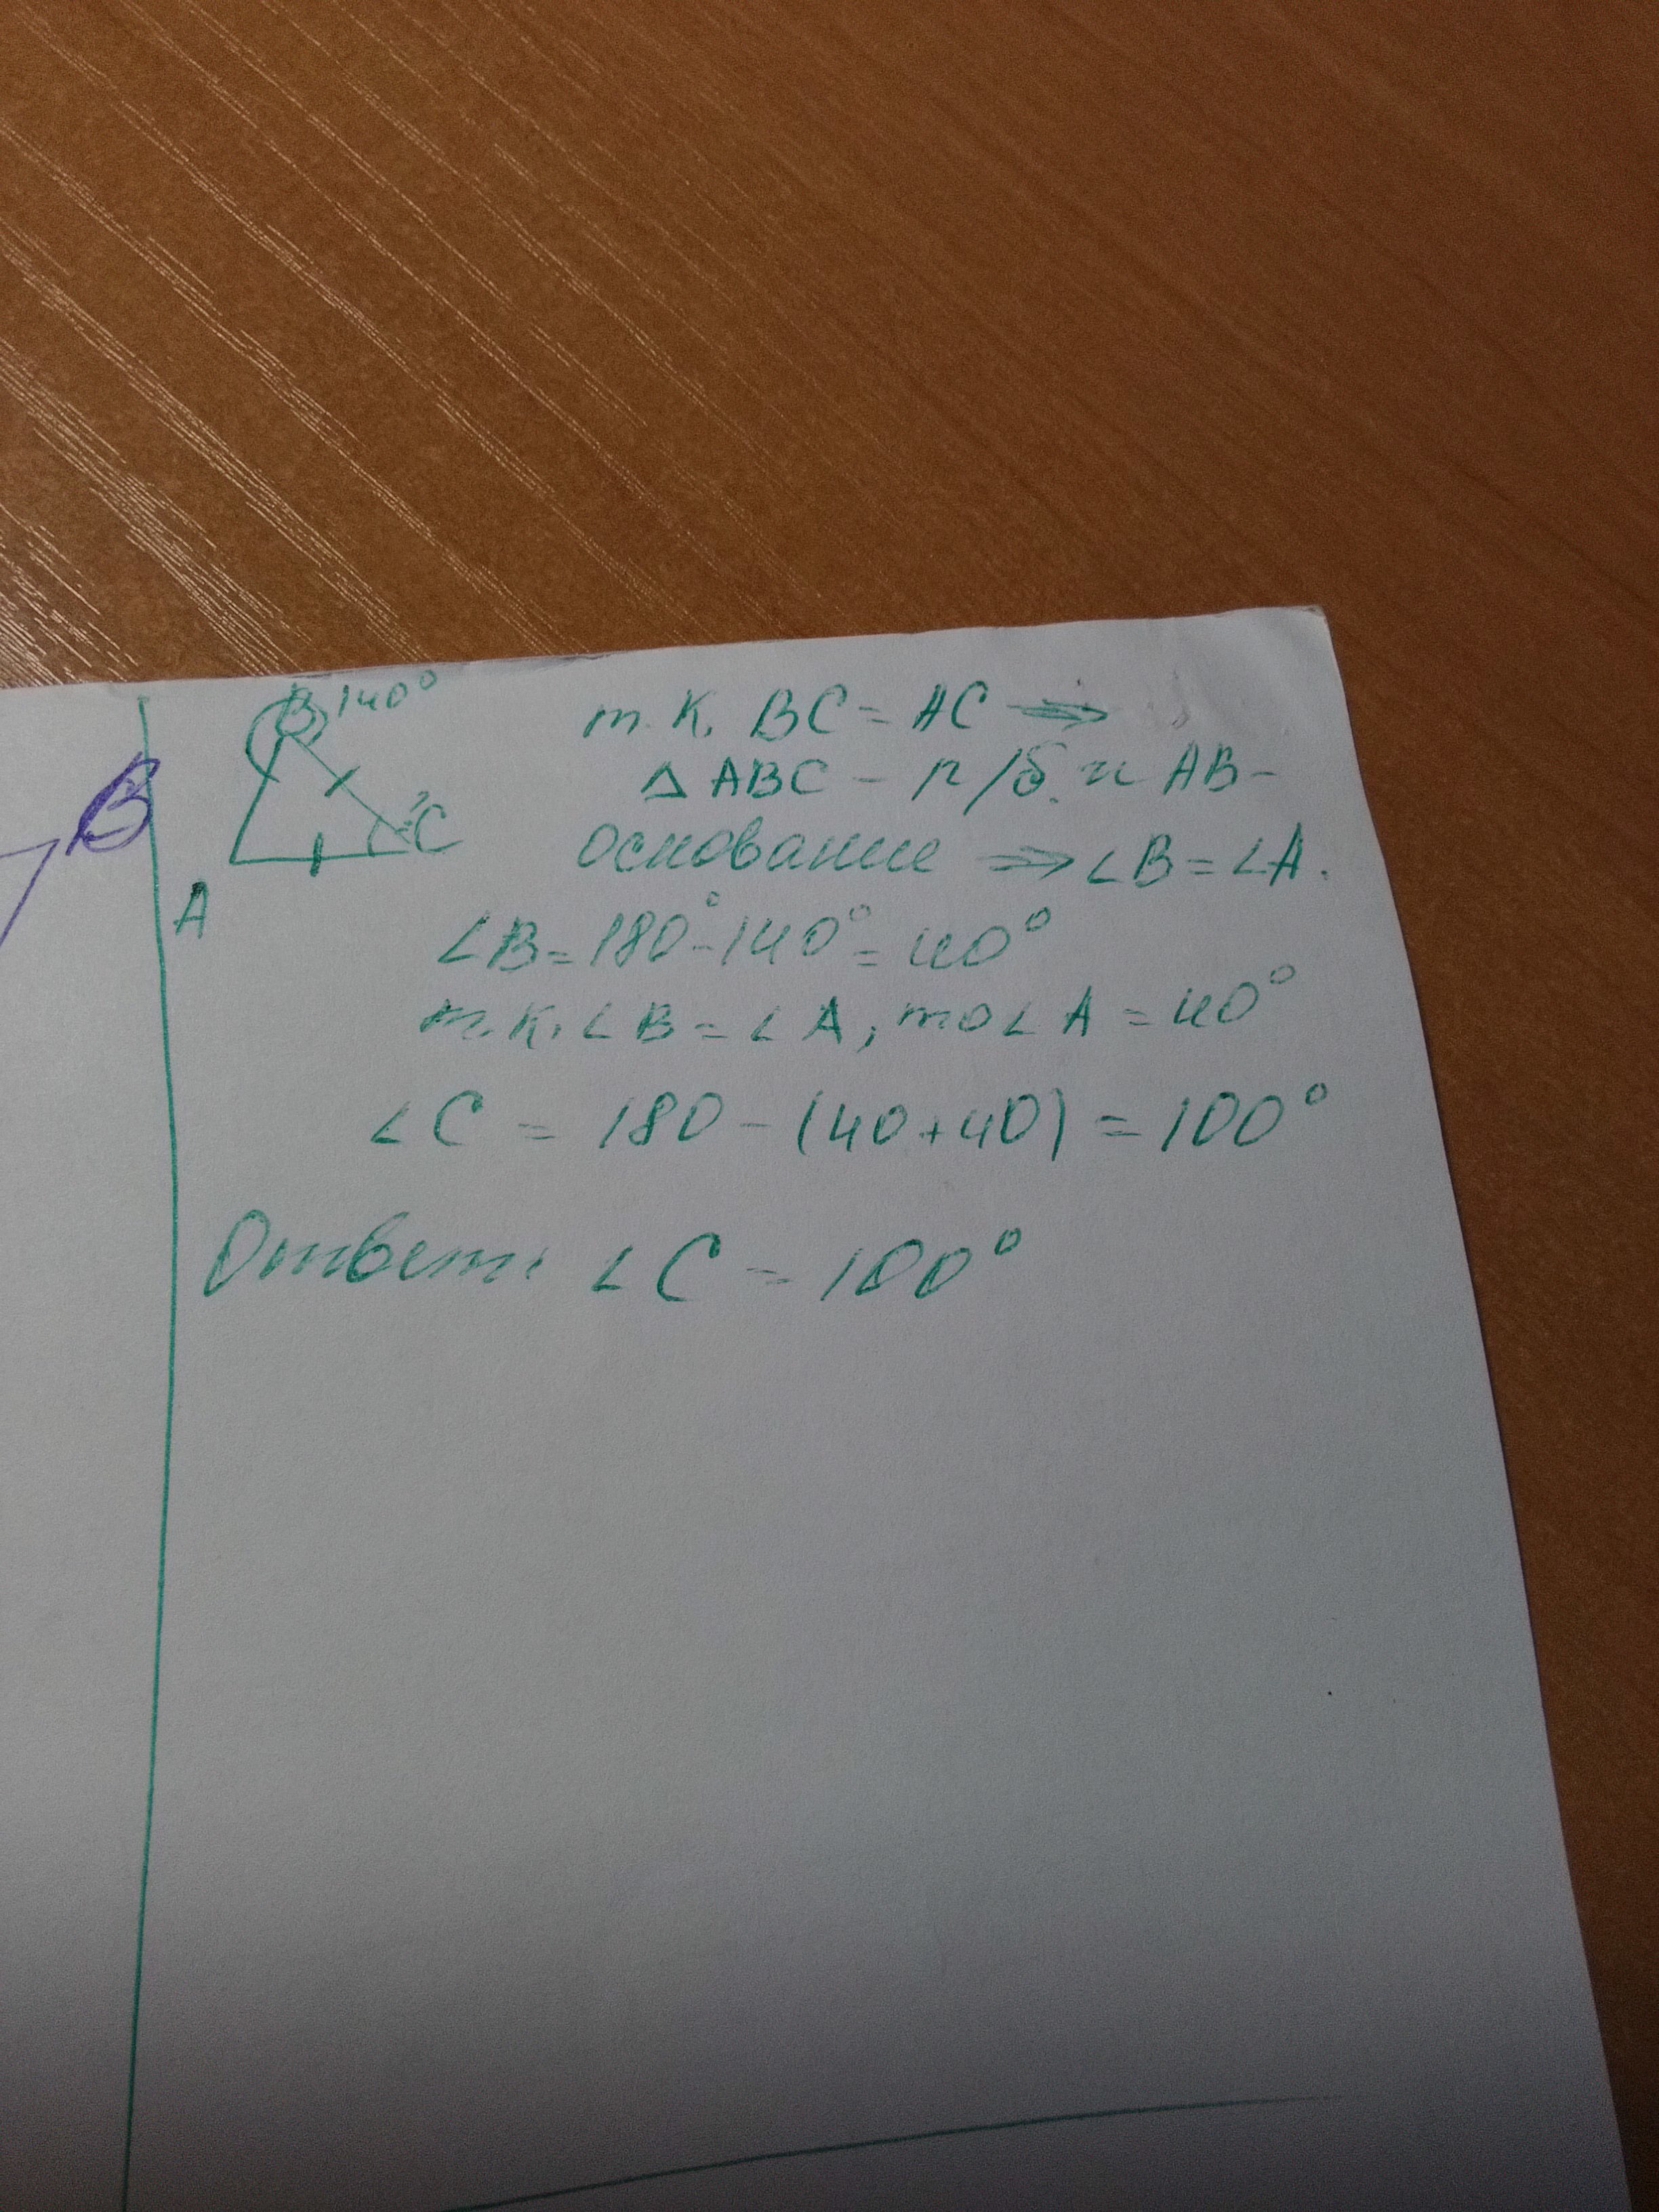 B
B 140°
?
C
A
т.к. BC = AC ⇒
Δ ABC – р/б. и AB –
основание ⇒ ∠B = ∠A.
∠B = 180° - 140° = 40°
т.к. ∠B = ∠A, то ∠A = 40°
∠C = 180 - (40+40) = 100°
Ответ: ∠C = 100°